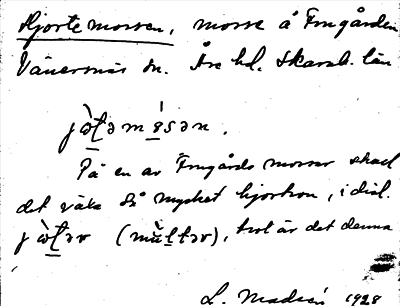 Hjortemossen, mosse å Frugården
Vänersnäs sn. Åse hd. Skarab. län
På en av Frugårds mossar skall
det växa så mycket hjortron, i dial.
(multəv), trol. är det denna
L. Modin 1928